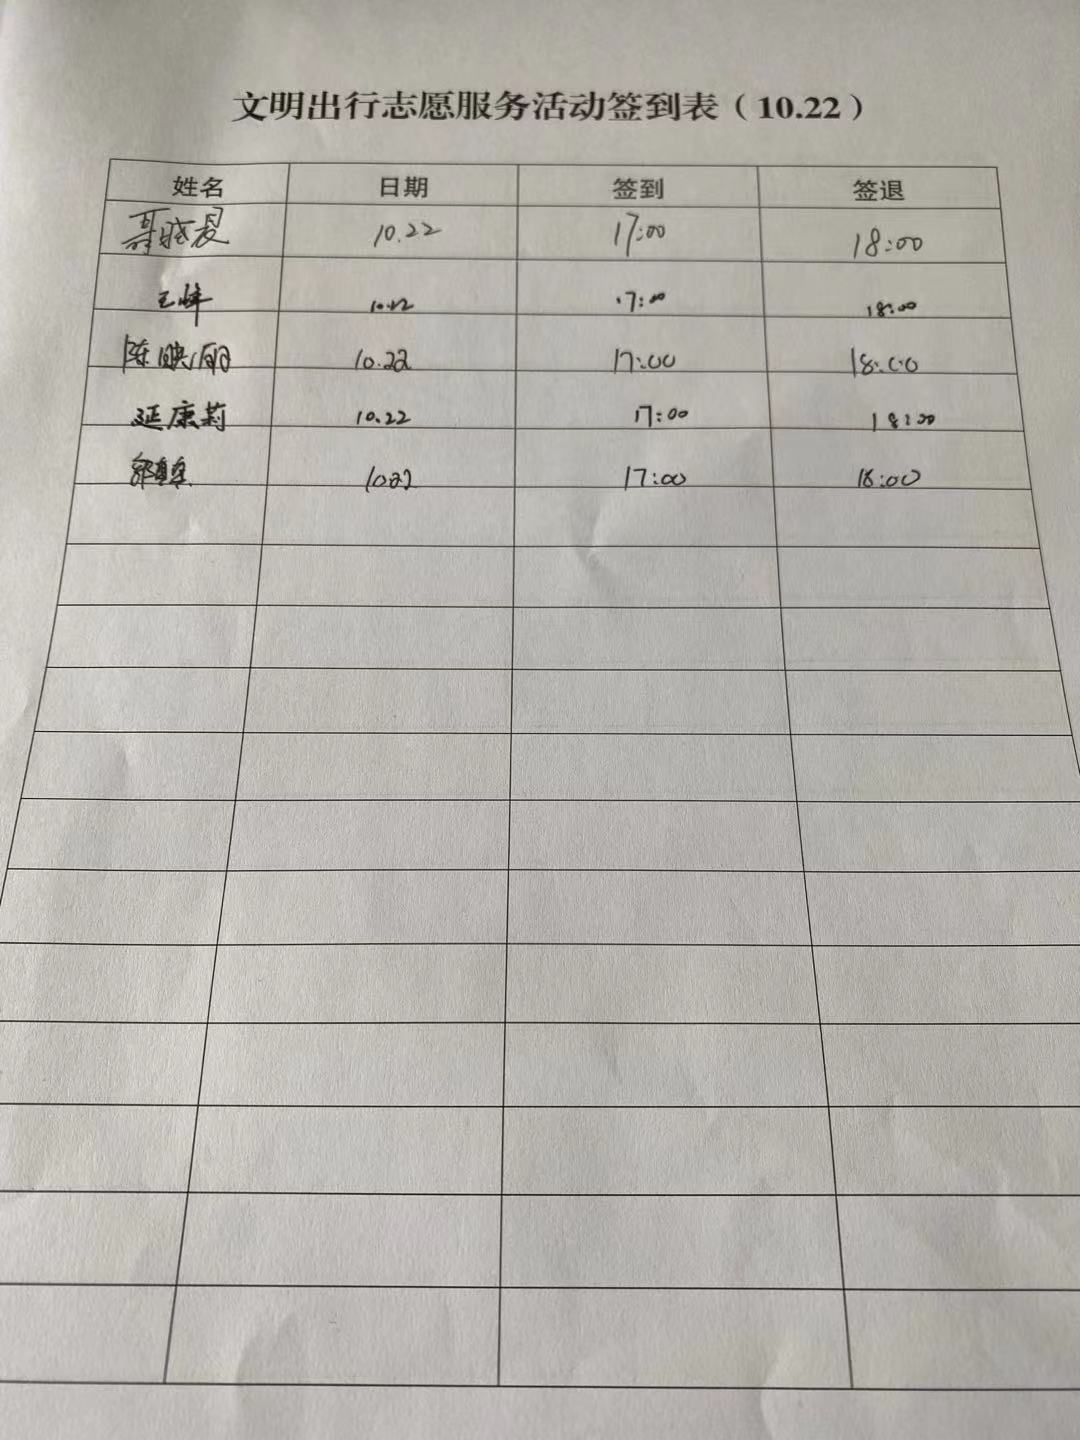 文明出行志愿服务活动签到表（10.22）
姓名 日期 签到 签退
10.22 17:00 18:00
王 10.22 17:00 18:00
陈映丽 10.22 17:00 18:00
延康莉 10.22 17:00 18:00
10.22 17:00 18:00